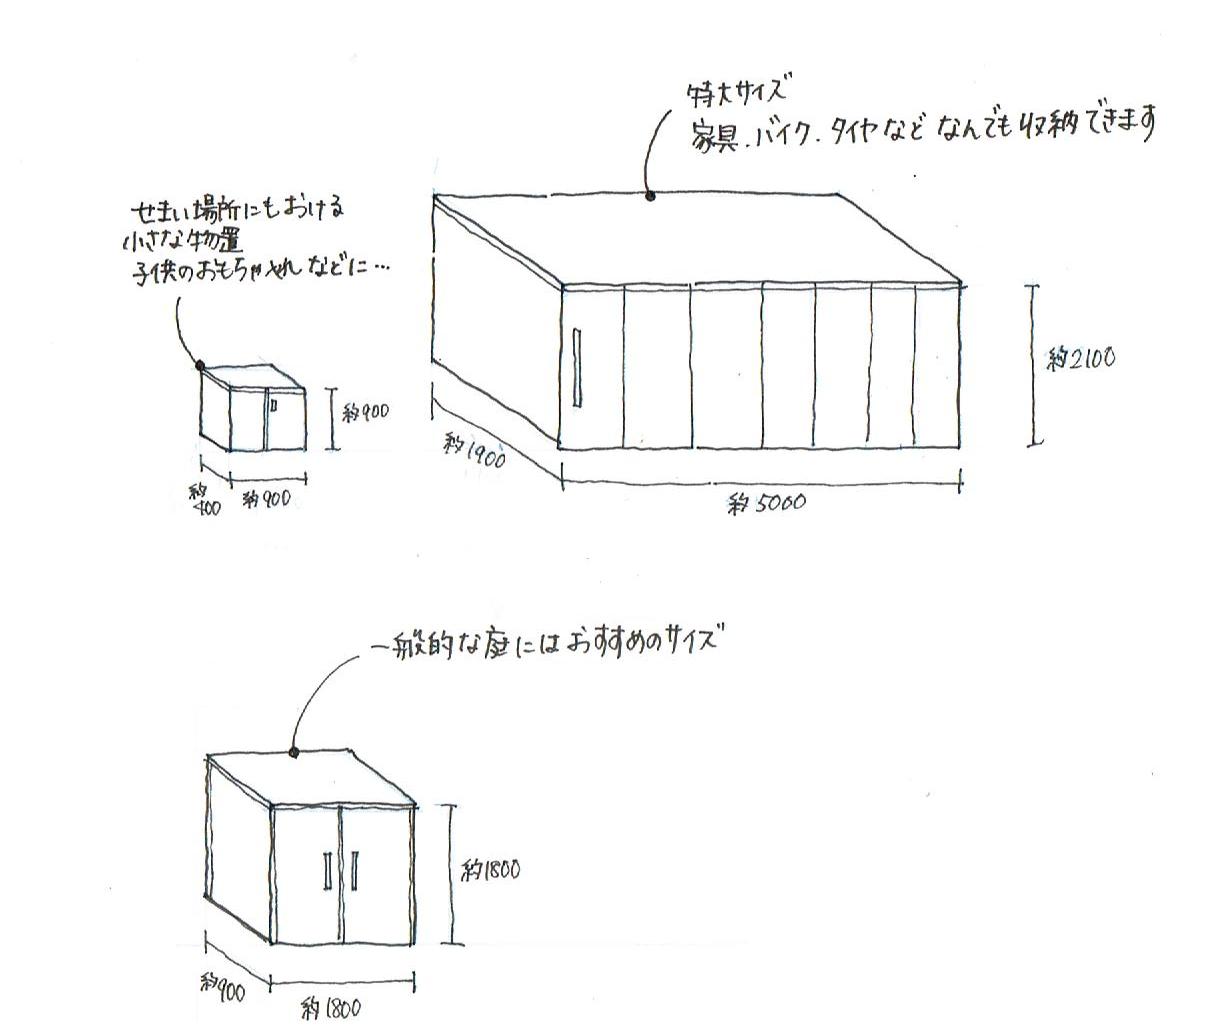 特大サイズ
家具.バイク.タイヤなど なんでも収納できます
せまい場所にもおける
小さな物置
子供のおもちゃ入れなどに…
約2100
約900
約1900
約400
約900
約5000
一般的な庭にはおすすめのサイズ
約1800
約900
約1800